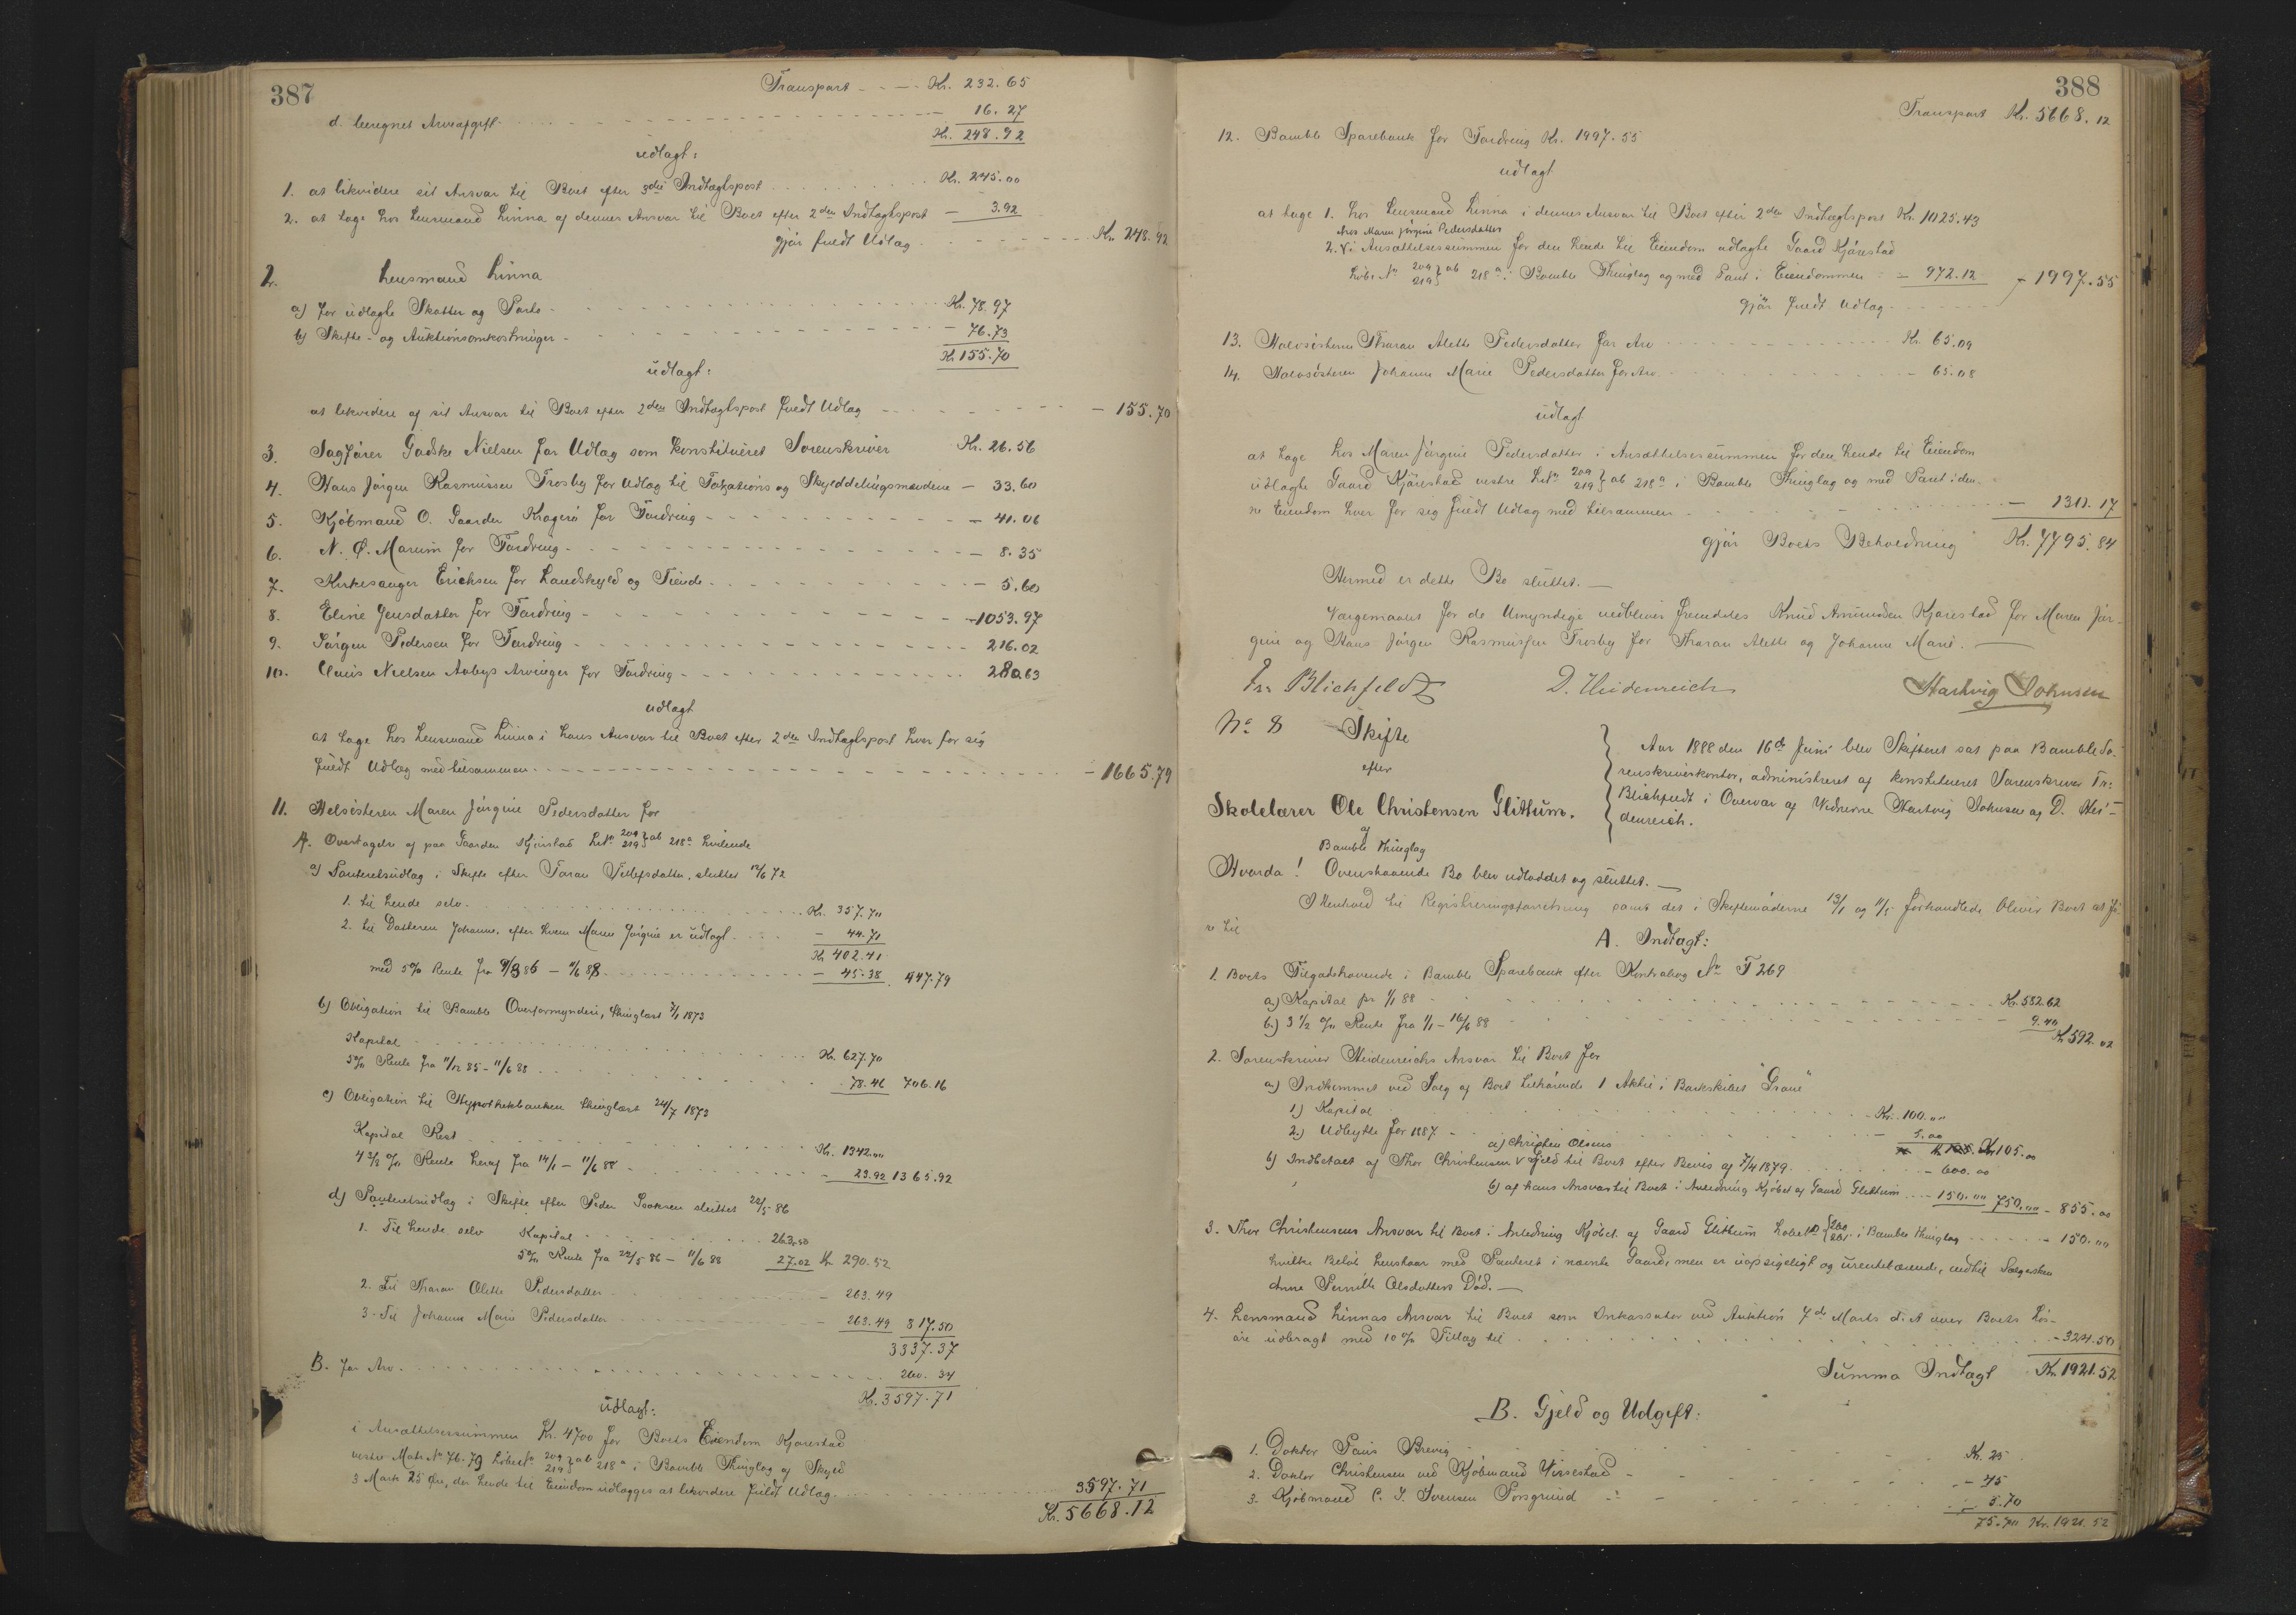 387
Transport - - - Kr. 232.65
d. beregnet Arveafgift - 16.27
Kr. 248.92
udlagt:
1. at likvidere sit Ansvar til Boet efter 3die Indtægtspost Kr. 245.00
2. at tage hos Lensmand Linna af dennes Ansvar til Boet efter 2den Indtægtspost - 3.92
gjør fuldt Udlæg - Kr. 248.92
2. Lensmand Linna
a) for udlagte Skatter og Porto - Kr. 78.97
b) Skifte- og Auktionsomkostninger - 76.73
Kr. 155.70
udlagt:
at likvidere af sit Ansvar til Boet efter 2den Indtægtspost fuldt Udlæg - 155.70
3. Sagfører Gadske Nielsen for Udlæg som konstitueret Sorenskriver Kr. 26.56
4. Hans Jørgen Rasmussen Trosby for Udlæg til Taxations og Skylddelingsmændene - 33.60
5. Kjøbmand O. Gaarder Kragerø for Fordring - 41.06
6. N. O. Marum for Fordring - 8.35
7. Kirkesanger Erichsen for Landskyld og Tiende - 5.60
8. Eline Jensdatter for Fordring - 1053.97
9. Jørgen Pedersen for Fordring - 216.02
10. Claus Nielsen Aabys Arvinger for Fordring - 280.63
udlagt
at tage hos Lensmand Linna i hans Ansvar til Boet efter 2den Indtægtspost hver for sig
fuldt Udlæg med tilsammen - 1665.79
11. Helsøsteren Maren Jørgine Pedersdatter for
A. Overtagelse af paa Gaarden Kjørstad LNo 209 219 } ab 218a hvilende
a) Panteretsudlæg i Skifte efter Taran Tellefsdatter, sluttet 12/6 72
1. til hende selv - Kr. 357.70
2. til Datteren Johanne, efter hvem Maren Jørgine er udlagt - 44.71
Kr. 402.41
med 5% Rente fra 9/3 86 - 11/6 88 - 45.38. 447.79
b) Obligation til Bamble Overformynderi, thinglæst 7/1 1873
Kapital Kr. 627.70
5% Rente fra 11/12 85 - 11/6 88 78.46 706.16
c) Obligation til Hypothekbanken thinglæst 24/7 1873
Kapital Rest - Kr. 1342.00
4 3/8 % Rente heraf fra 14/1 - 11/6 88 - 23.92 1365.92
d) Panteretsudlæg i Skifte efter Peder Isaksen sluttet 22/5 86
1. Til hende selv Kapital 263.50
5% Rente fra 22/5 86 - 11/6 88 27.02 Kr. 290.52
2. Til Tharan Alette Pedersdatter - 263.49
3. Til Johanne Marie Pedersdatter - 263.49 817.50
3337.37
B. for Arv 260.34
Kr. 3597.71
udlagt:
i Ansættelsessummen Kr. 4700 for Boets Eiendom Kjørestad
vestre Matr No 76.79 LøbeNo 209 219 } ab 218a i Bamble Thinglag af Skyld
3 Mark 25 Øre, der hende til Eiendom udlægges at likvidere fuldt Udlæg 3597.71
Kr. 5668.12
388
Transport Kr. 5668.12
12. Bamble Sparebank for Fordring Kr. 1997.55
udlagt
at tage 1. hos Lensmand Linna i dennes Ansvar til Boet efter 2den Indtægtspost Kr. 1025.43
hos Maren Jørgine Pedersdatter
2. i Ansættelsessummen for den hende til Eiendom udlagte Gaard Kjørestad
Løbe No 209 219 } ab 218a i Bamble Thinglag og med Pant i Eiendommen - 972.12 - 1997.55
gjør fuldt Udlæg
13. Halvsøsteren Tharan Alette Pedersdatter for Arv Kr. 65.09
14. Halvsøsteren Johanne Marie Pedersdatter for Arv - 65.08
udlagt
at tage hos Maren Jørgine Pedersdatter i Ansættelsessummen for den hende til Eiendom
udlagte Gaard Kjørestad vestre LNo 209 219 } ab 218a i Bamble Thinglag og med Pant i den-
ne Eiendom hver for sig fuldt Udlæg med tilsammen - 130.17
gjør Boets Beholdning Kr. 7795.84
Hermed er dette Bo sluttet. —
Værgemaalet for de Umyndige vedbliver fremdeles Knud Amundsen Kjørestad for Maren Jør-
gine og Hans Jørgen Rasmussen Trosby for Tharan Alette og Johanne Marie. —
Fr. Blichfeldt D. Heidenreich Hartvig Johnsen
No 8 Skifte
efter
Skolelærer Ole Christensen Glittum.
af
Bamble Thinglag
Aar 1888 den 16de Juni blev Skifteret sat paa Bamble So-
renskriverkontor, administreret af konstitueret Sorenskriver Fr.
Blichfeldt i Overvær af Vidnerne Hartvig Johnsen og D. Hei-
denreich.
Hvorda! Ovenstaaende Bo blev udloddet og sluttet. —
I Henhold til Registreringsforretning samt det i Skiftemøderne 13/1 og 11/5 forhandlede bliver Boet at fø-
re til
A. Indtægt:
1. Boets Tilgodehavende i Bamble Sparebank efter Kontrabog No F 269
a) Kapital pr 1/1 88 Kr. 582.62
b) 3 1/2 % Rente fra 1/1 - 16/6 88 9.40 Kr. 592.02
2. Sorenskriver Heidenreichs Ansvar til Boet for
a) Indkommet ved Salg af Boet tilhørende 1 Aktie i Barkskibet "Grane"
1) Kapital Kr. 100.00
2) Udbytte for 1887 - 5.00 Kr. 105.00
a) Christen Olsens
b) Indbetalt af Thor Christensen Gjeld til Boet efter Bevis af 7/4 1879 - 600.00
b) af hans Ansvar til Boet i Anledning Kjøbet af Gaard Glittum - 150.00 750.00 - 855.00
3. Thor Christensens Ansvar til Boet i Anledning Kjøbet af Gaard Glittum LøbeNo 200 201 i Bamble Thinglag - 150.00
hvilke Beløb henstaar med Panteret i nævnte Gaard, men er uopsigeligt og urentebærende, indtil Sælgersken
Anne Pernille Olsdatters Død. —
4. Lensmand Linnas Ansvar til Boet som Inkassator ved Auktion 7de Marts d. A over Boets Løs-
øre udbragt med 10% Tillæg til - 324.50
Summa Indtægt Kr. 1921.52
B. Gjeld og Udgift:
1. Doktor Paus Brevig Kr. 25
2. Doktor Christensen ved Kjøbmand Virsestad - 45
3. Kjøbmand C. J. Iversen Porsgrund - 5.70
75.70 Kr. 1921.52